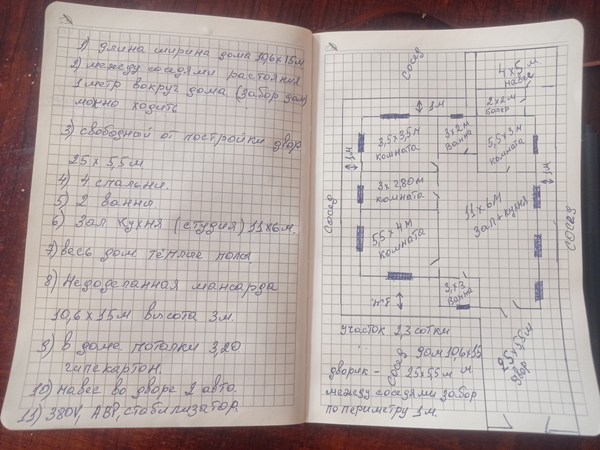 1) длина ширина дома 10,6х15м
2) между соседями растояния
1 метр вокруг дома (забор дом)
можно ходить
3) свободной от постройки двор
25 х 5,5м
4) 4 спальни.
5) 2 ванни.
6) Зал кухня (студия) 11х6м.
7) весь дом тёплие полы
8) Недоделанная мансарда
10,6 х 15м высота 3м.
9) в доме потолки 3,20
гипекартон.
10) навес во дворе 2 авто.
11) 380V, АВР, стабилизатор
Сосед
4х5м
навес
2х2м
1м
3,5х3,5м
комната
3х2м
Ванна
5,5х3м
комната
1м
3х2,80м
комната
1м
Сосед
11х6м
Зал+кухня
Сосед
5,5х4м
комната
3х3
Ванна
1м.
участок 2,3 сотки
Сосед
дом 10,6х15
25х5,5м
двор
дворик - 25х5,5м м
между соседями забор
по периметру 1м.